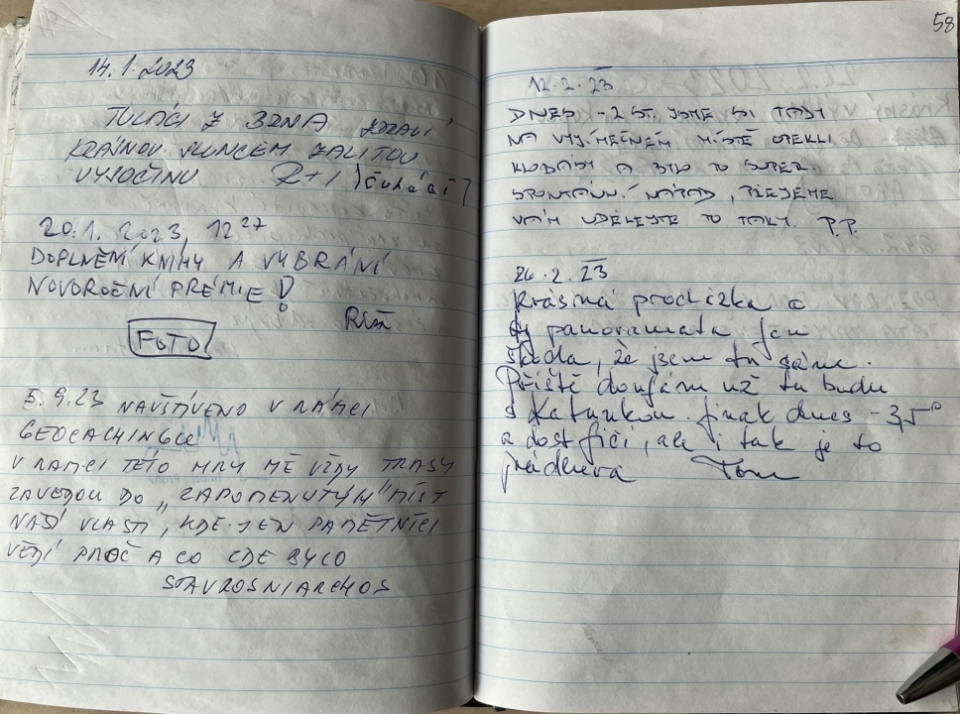 14.1.2023
TULÁCI Z BRNA ZDRAVÍ
KRAJINOU SLUNCEM ZALITOU
VYSOČINU 2+1
20.1.2023, 12²⁷
DOPLNĚNÍ KNIHY A VYBRÁNÍ
NOVOROČNÍ PRÉMIE!
FOTO
5.9.23 NAVŠTÍVENO V RÁMCI
GEOCACHINGU
V RÁMCI TÉTO HRY MĚ VŽDY TRASY
ZAVEDOU DO „ZAPOMENUTÝCH" MÍST
NAŠÍ VLASTI, KDE JEN PAMĚTNÍCI
VĚDÍ PROČ A CO KDE BYLO
STAVROSNIARCHOS
58
12.2.23
DNES -2 ST. JSME SI TADY
NA VÝJIMEČNÉM MÍSTĚ OPEKLI
KLOBÁSY A BYLO TO SUPER.
SPONTÁNNÍ NÁPAD, PŘEJEME
VÁM UDĚLEJTE TO TAKY. P.P.
26.2.23
Krásná procházka a
ty panoramata. Jen
škoda, že jsem tu sám.
Příště doufám už tu budu
s Katunkou. Jinak dnes -3,5°
a dost fičí, ale i tak je to
nádhera Tom